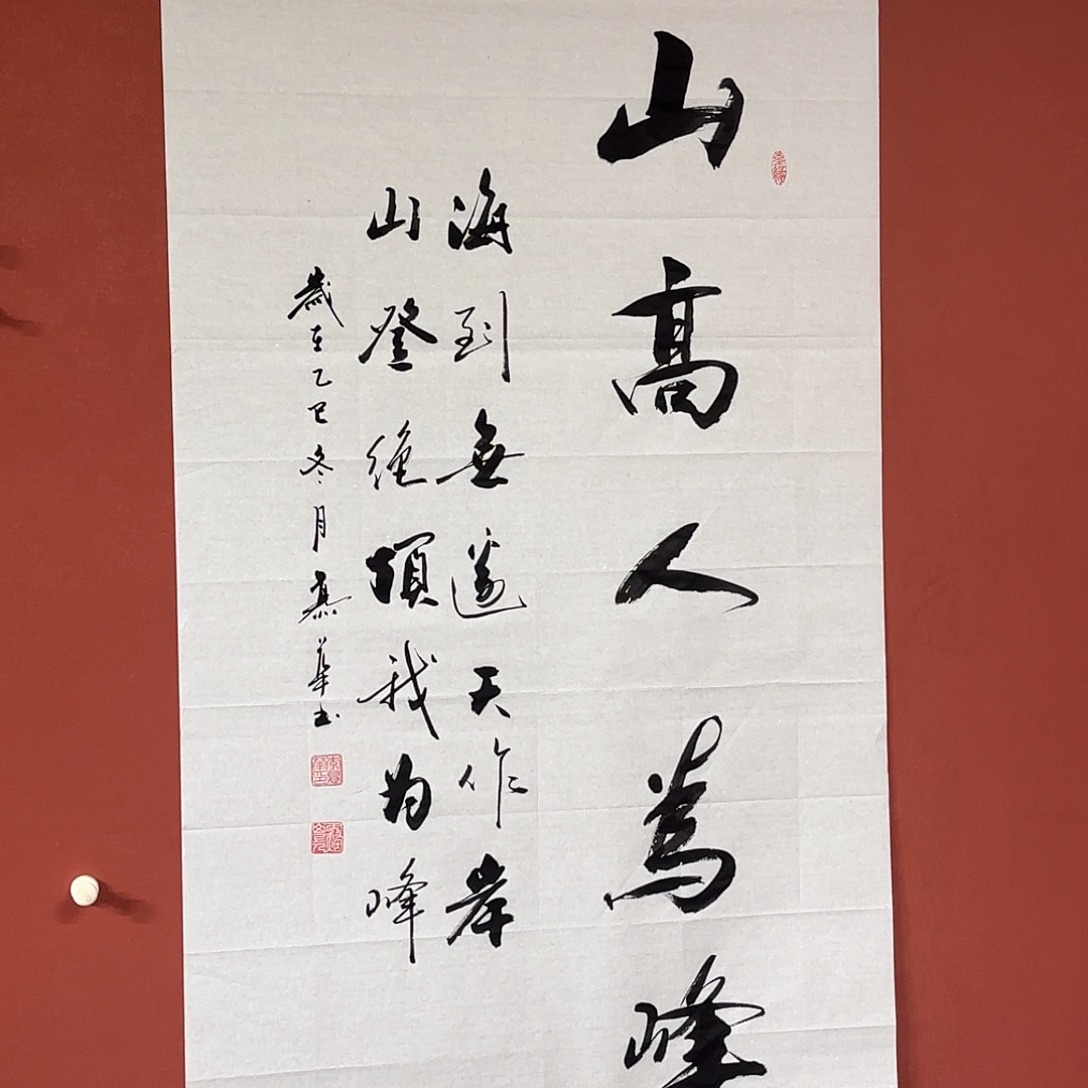 山高人為峰
海到無邊天作岸
山登絕頂我为峰
歲在乙巳冬月慕華书